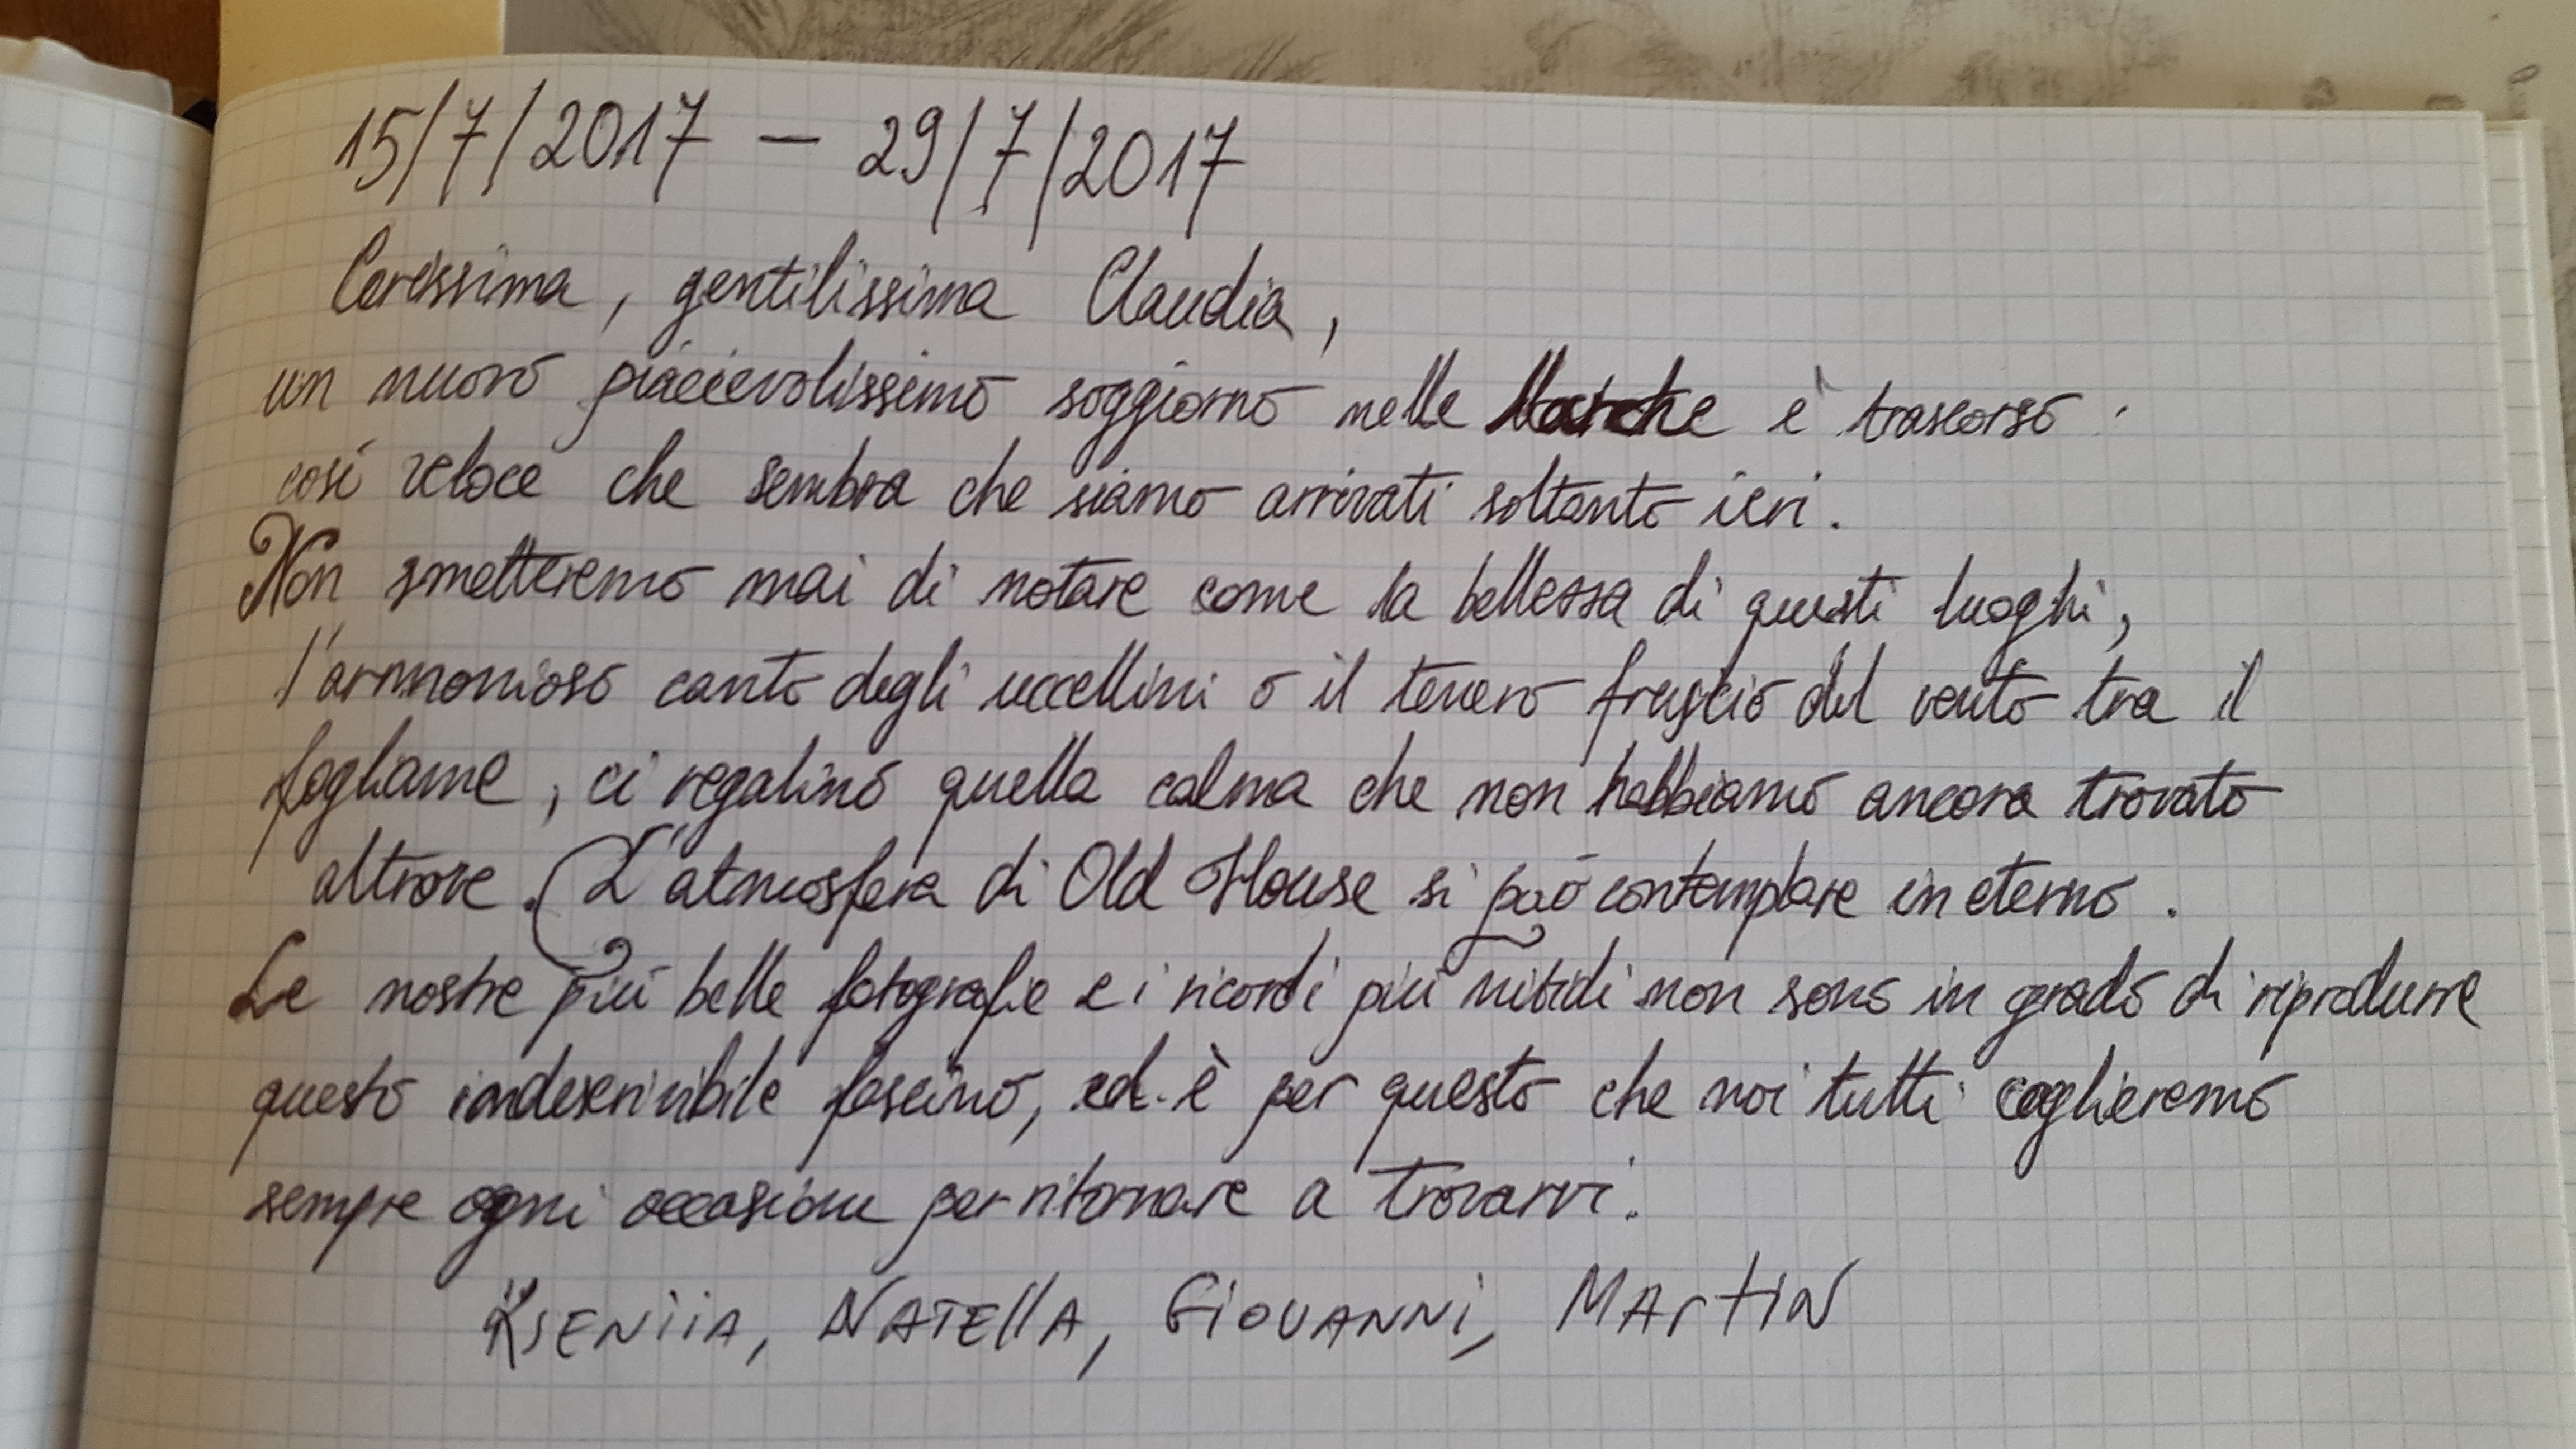 15/7/2017 — 29/7/2017
Carissima, gentilissima Claudia,
un nuovo piacevolissimo soggiorno nelle Marche è trascorso:
così veloce che sembra che siamo arrivati soltanto ieri.
Non smetteremo mai di notare come la bellezza di questi luoghi,
l'armonioso canto degli uccellini o il tenero fruscio del vento tra il
fogliame, ci regalino quella calma che non habbiamo ancora trovato
altrove. L'atmosfera di Old House si può contemplare in eterno.
Le nostre più belle fotografie e i ricordi più nitidi non sono in grado di riprodurre
questo indescrivibile fascino, ed è per questo che noi tutti coglieremo
sempre ogni occasione per ritornare a trovarvi.
KSENiiA, NATEllA, GiOVANNi, MArtiN